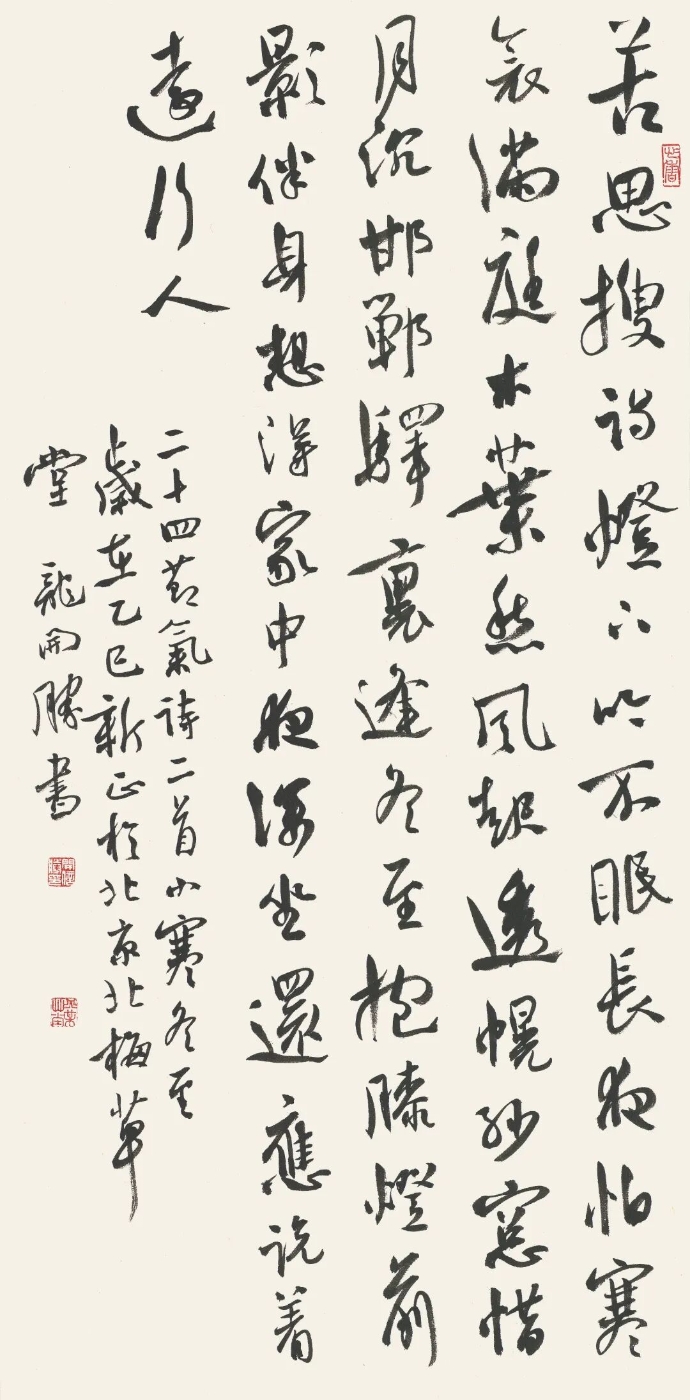 苦思搜詩燈下吟不眠長夜怕寒
衾滿庭木葉愁風起透幌紗窗惜
月沉邯鄲驛裏逢冬至抱膝燈前
影伴身想得家中夜深坐還應說着
遠行人
二十四節氣詩二首小寒冬至
歲在乙巳新正於北京北梅草
堂 龍開勝書